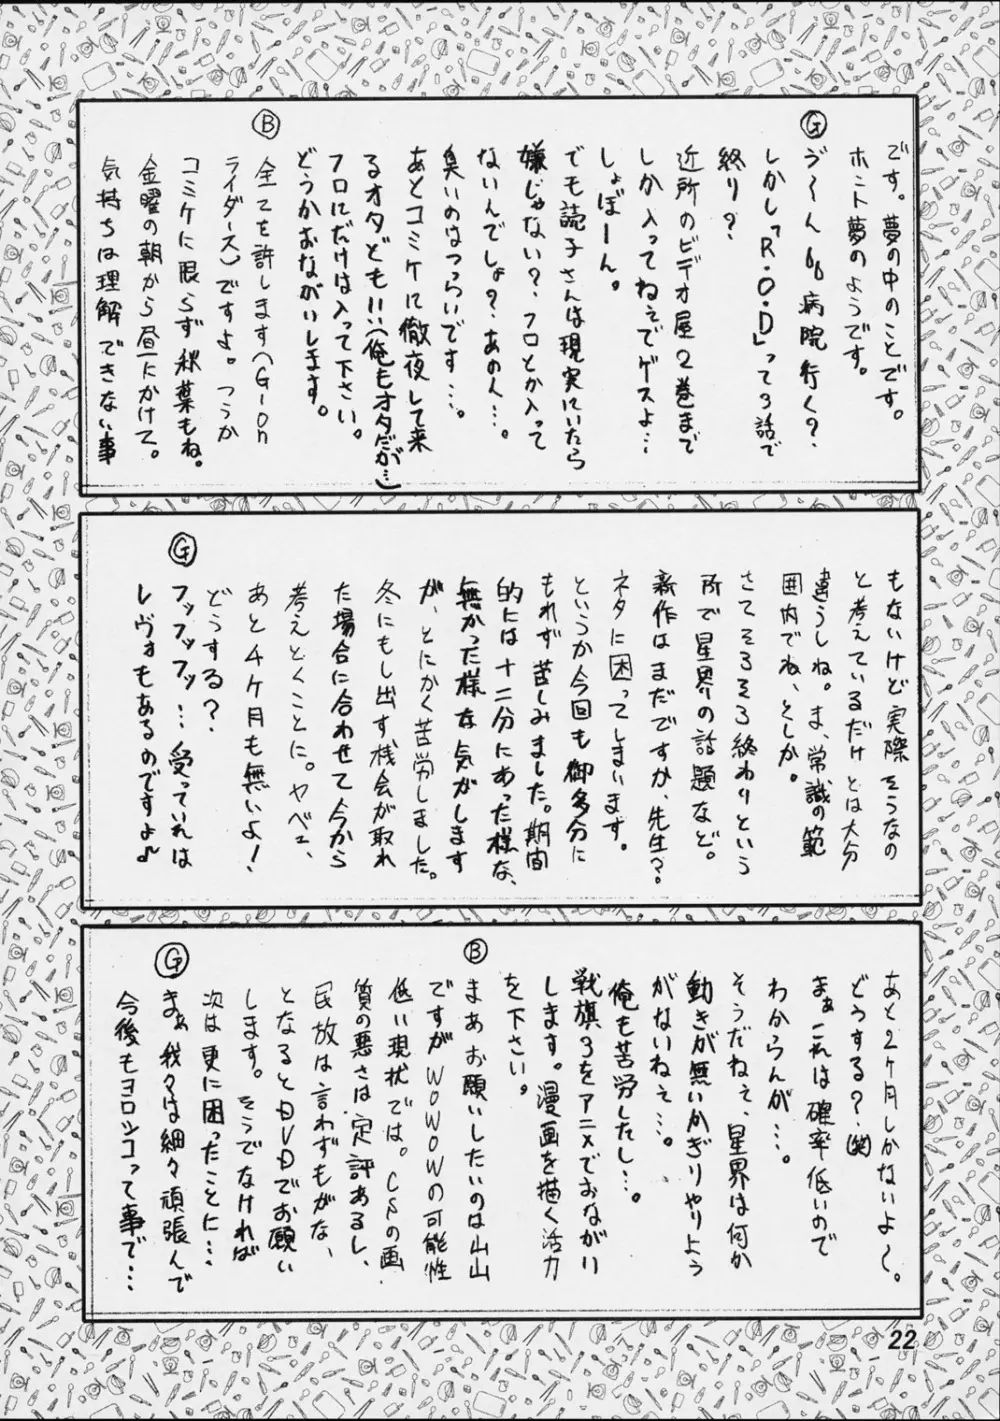 です。夢の中のことです。
ホント夢のようです。
Ⓖ
う〜ん、病院行く？
しかし「R・O・D」って3話で
終り？
近所のビデオ屋2巻まで
しか入ってねぇでゲスよ…
しょぼーん。
でも読子さんは現実にいたら
嫌じゃない？、フロとか入って
ないんでしょ？、あの人…。
臭いのはつらいです…。
あとコミケに徹夜して来
るオタども!!（俺もオタだが…）
フロにだけは入って下さい。
どうかおながいします。
Ⓑ
全てを許します（G-on
ライダース）ですよ。つうか
コミケに限らず秋葉もね。
金曜の朝から昼にかけて。
気持ちは理解できない事
もないけど実際そうなの
と考えているだけとは大分
違うしね。ま、常識の範
囲内でね、としか。
さてそろそろ終わりという
所で星界の話題など。
新作はまだですか、先生？。
ネタに困ってしまいます。
というか今回も御多分に
もれず苦しみました。期間
的には十二分にあった様な、
無かった様な気がします
が、とにかく苦労しました。
冬にもし出す機会が取れ
た場合に合わせて今から
考えとくことに。ヤベェ、
あと4ケ月も無いよ！
どうする？
Ⓖ
フッフッフッ…受っていれば
レヴォもあるのですよ♪
あと2ヶ月しかないよ〜。
どうする？、(笑)
まぁこれは確率低いので
わからんが…。
そうだねぇ、星界は何か
動きが無いかぎりやりよう
がないねぇ…。
俺も苦労したし…。
戦旗3をアニメでおながい
します。漫画を描く活力
を下さい。
Ⓑ
まあお願いしたいのは山山
ですがWOWOWの可能性
低い現状では。CSの画
質の悪さは定評あるし、
民放は言わずもがな、
となるとDVDでお願い
します。そうでなければ
次は更に困ったことに…
Ⓖ
まぁ我々は細々頑張んで
今後もヨロシコって事で…
22